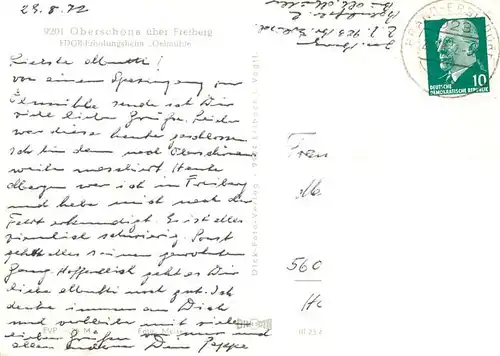 29.8.72
9201 Oberschöna über Freiberg
FDGB-Erholungsheim „Oelmühle"
Liebste Mutti!
von einem Spaziergang zur
Ölmühle sende ich Dir
viele liebe Grüße. Leider
war diese heute geschlossen.
Ich bin dann nach Oberschöna
weiter marschiert. Heute
Morgen war ich in Freiberg
und habe mich nach der
Fahrt erkundigt. Es ist alles
ziemlich schwierig. Sonst
geht alles seinen gewohnten
Gang. Hoffentlich geht es Dir
liebe Mutti noch gut. Ich
denke immer an Dich
und verbleibe mit vielen
lieben Grüßen von mir und
allen anderen Dein
EVP M
Foto-
III 25
Dick-Foto-Verlag
DEUTSCHE
DEMOKRATISCHE REPUBLIK
10
Frau
560